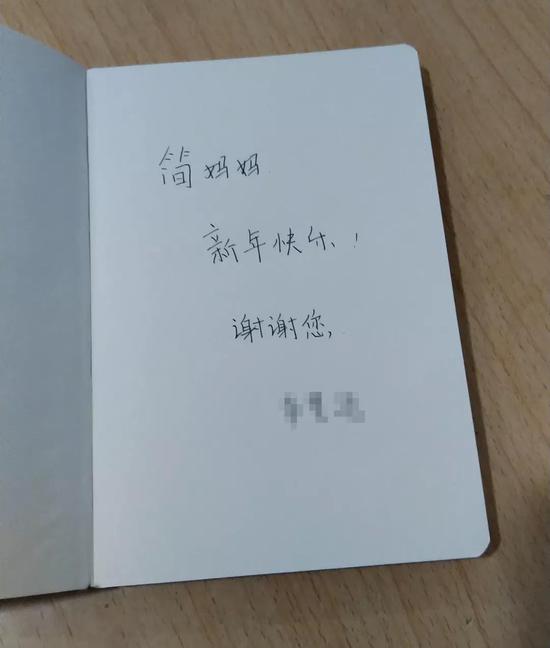 简妈妈
新年快乐！
谢谢您，